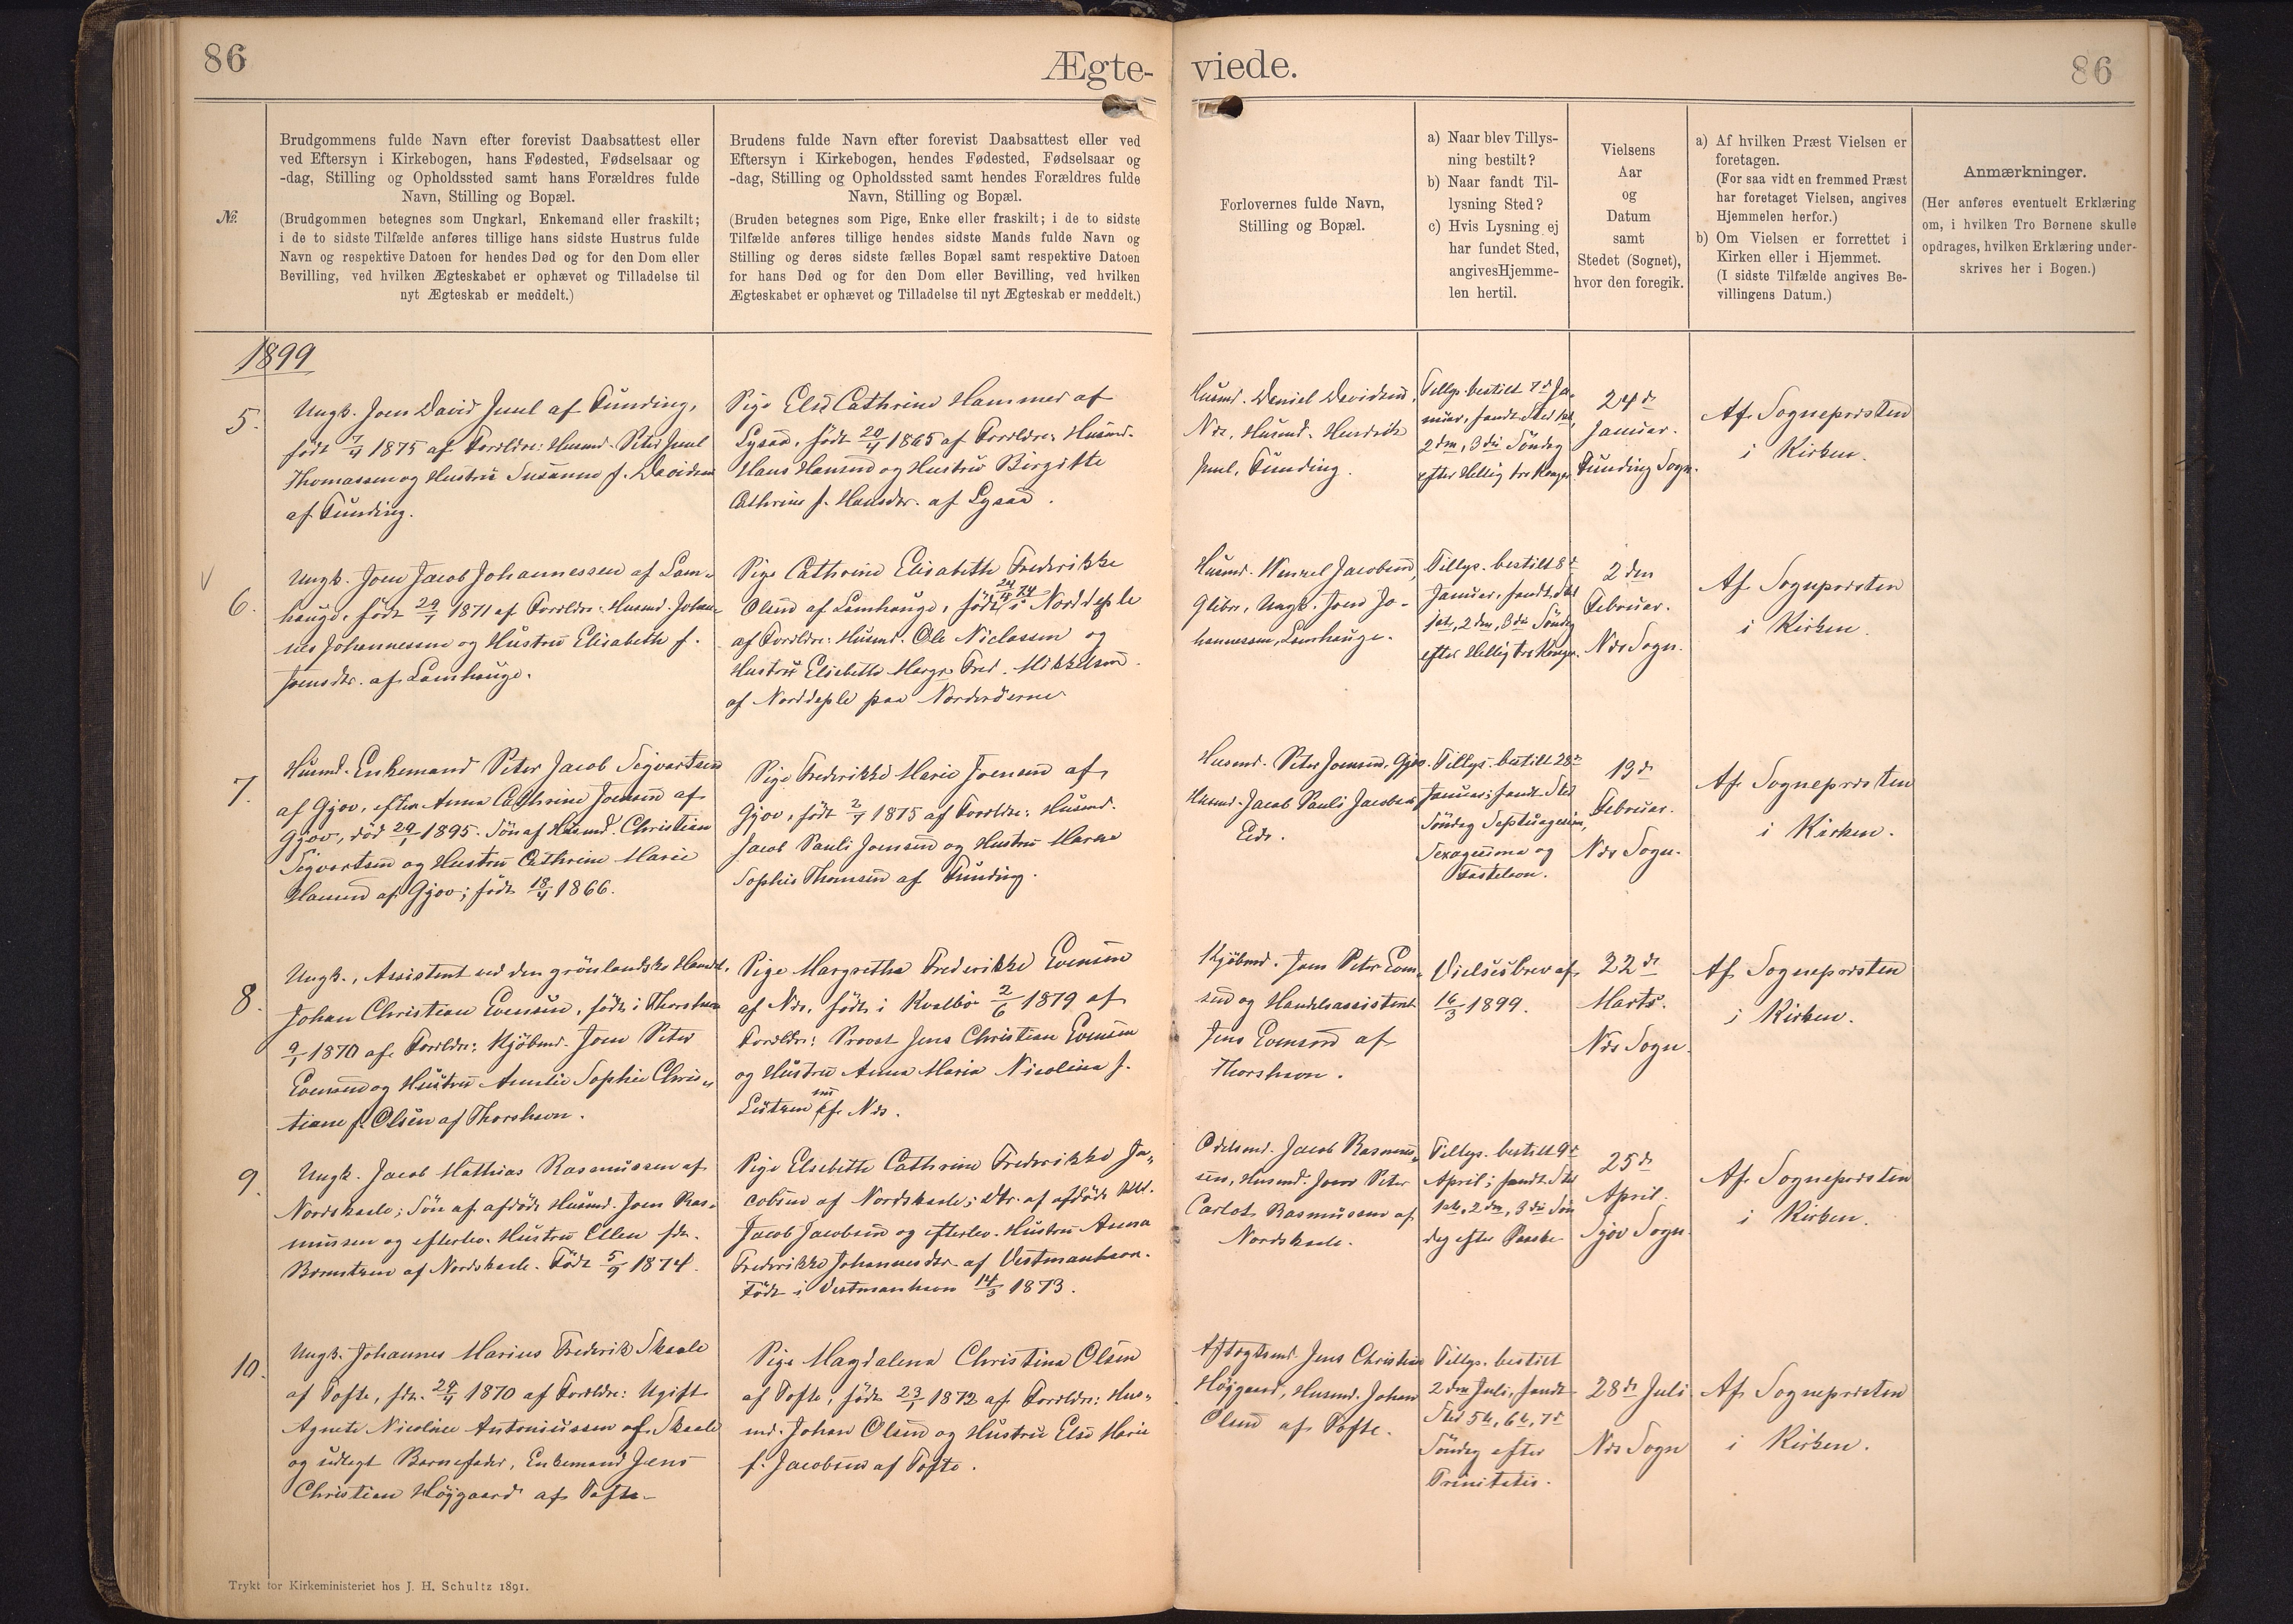 86
Ægte-
viede.
86
№.
Brudgommens fulde Navn efter forevist Daabsattest eller
ved Eftersyn i Kirkebogen, hans Fødested, Fødselsaar og
-dag, Stilling og Opholdssted samt hans Forældres fulde
Navn, Stilling og Bopæl.
(Brudgommen betegnes som Ungkarl, Enkemand eller fraskilt;
i de to sidste Tilfælde anføres tillige hans sidste Hustrus fulde
Navn og respektive Datoen for hendes Død og for den Dom eller
Bevilling, ved hvilken Ægteskabet er ophævet og Tilladelse til
nyt Ægteskab er meddelt.)
Brudens fulde Navn efter forevist Daabsattest eller ved
Eftersyn i Kirkebogen, hendes Fødested, Fødselsaar og
-dag, Stilling og Opholdssted samt hendes Forældres fulde
Navn, Stilling og Bopæl.
(Bruden betegnes som Pige, Enke eller fraskilt; i de to sidste
Tilfælde anføres tillige hendes sidste Mands fulde Navn og
Stilling og deres sidste fælles Bopæl samt respektive Datoen
for hans Død og for den Dom eller Bevilling, ved hvilken
Ægteskabet er ophævet og Tilladelse til nyt Ægteskab er meddelt.)
Forlovernes fulde Navn,
Stilling og Bopæl.
a) Naar blev Tillys-
ning bestilt?
b) Naar fandt Til-
lysning Sted?
c) Hvis Lysning ej
har fundet Sted,
angivesHjemme-
len hertil.
Vielsens
Aar
og
Datum
samt
Stedet (Sognet),
hvor den foregik.
a) Af hvilken Præst Vielsen er
foretagen.
(For saa vidt en fremmed Præst
har foretaget Vielsen, angives
Hjemmelen herfor.)
b) Om Vielsen er forrettet i
Kirken eller i Hjemmet.
(I sidste Tilfælde angives Be-
villingens Datum.)
Anmærkninger.
(Her anføres eventuelt Erklæring
om, i hvilken Tro Børnene skulle
opdrages, hvilken Erklæring under-
skrives her i Bogen.)
1899
5.
Ungk. Joen David Juul af Funding,
født 7/4 1875 af Forældre: Husmd. Peter Juul
Thomassen og Hustru Susanne f. Davidsen
af Funding.
Pige Else Cathrine Hammer af
født 20/4 1865 af Forældre: Husmd.
Hans Hansen og Hustru Birgitte
Cathrine f. Hansdtr. af
Husmd. Daniel Davidsen,
Næs, Husmd. Hendrik
Juul, Funding.
Tillys. bestilt 7d Ja-
nuar, fandt Sted 1ste,
2den, 3die Söndag
efter Hellig tre Konger
24de
Januar.
Funding Sogn.
Af Sognepræsten
i Kirken.
6.
Ungk. Joen Jacob Johannessen af Lam-
hauge, født 1871 af Forældre: Husmd. Johan-
nes Johannessen og Hustru Elisabeth f.
Joensdtr. af Lamhauge.
Pige Cathrine Elisabeth Frederikke
Olsen af Lamhauge, født 24/4 74 i Norddeple
af Forældre: Husmd. Ole Niclassen og
Hustru Elsebeth Margr. Fred. Mikkelsen
af Norddeple paa Norderöerne
Husmd. Wenzel Jacobsen,
Glibre, Ungk. Joen Jo-
hannessen, Lamhauge.
Tillys. bestilt 8d
Januar, fandt Sted
1ste, 2den, 3die Söndag
efter Hellig tre Konger.
2den
Februar.
Næs Sogn.
Af Sognepræsten
i Kirken.
7.
Husmd. Enkemand Peter Jacob Sigvartsen
af Gjov, efter Anna Cathrine Joensen af
Gjov, död 29/1 1895. Søn af Husmd. Christian
Sigvartsen og Hustru Cathrine Marie
Hansen af Gjov; født 18/4 1866.
Pige Frederikke Marie Joensen af
Gjov, født 2/4 1875 af Forældre: Husmd.
Jacob Pauli Joensen og Hustru Maren
Sophie Thomsen af Funding.
Husmd. Peter Joensen, Gjov.
Husmd. Jacob Pauli Jacobsen
Eide.
Tillys. bestilt 28de
Januar; fandt Sted
Söndag Septuagesima,
Sexagesima og
Fastelavn.
19de
Februar.
Næs Sogn.
Af Sognepræsten
i Kirken.
8.
Ungk., Assistent ved den grönlandske Handel,
Johan Christian Evensen, født i Thorshavn
9/1 1870 af Forældre: Kjöbmd. Joen Peter
Evensen og Hustru Amalie Sophie Chris-
tiane f. Olsen af Thorshavn.
Pige Margretha Frederikke Evensen
af Næs, født i Kvalbø 2/6 1879 af
Forældre: Provst Jens Christian Evensen
og Hustru Anna Maria Nicolina f.
Lützen af Næs.
Kjöbmd. Joen Peter Even-
sen og Handelsassistent
Jens Evensen af
Thorshavn.
Vielsesbrev af
16/3 1899.
22de
Marts.
Næs Sogn.
Af Sognepræsten
i Kirken.
9.
Ungk. Jacob Mathias Rasmussen af
Nordskaale; Søn af afdöde Husmd. Joen Ras-
mussen og efterlev. Hustru Ellen fdt.
af Nordskaale. Født 5/9 1874.
Pige Elsebeth Cathrine Frederikke Ja-
cobsen af Nordskaale; Dtr. af afdöde
Jacob Jacobsen og efterlev. Hustru Anna
Frederikke Johannesdtr. af Vestmanhavn.
Født i Vestmanhavn 14/3 1873.
Odelsmd. Jacob Rasmus-
sen, Husmd. Joen Peter
Carlot Rasmussen af
Nordskaale.
Tillys. bestilt 9d
April; fandt Sted
1ste, 2den, 3die Sön
dag efter Paaske
25de
April.
Gjov Sogn.
Af Sognepræsten
i Kirken.
10.
Ungk. Johannes Marius Frederik Skaale
af Tofte, fdt. 1870 af Forældre: Ugift
Agnete Nicoline Antoniussen af Skaale
og udlagt Barnefader, Enkemand Jens
Christian Höjgaard af Tofte
Pige Magdalena Christina Olsen
af Tofte, født 23/1 1872 af Forældre: Hus-
md. Johan Olsen og Hustru Else Marie
f. Jacobsen af Tofte.
Aftægtsmd. Jens Christian
Höjgaard, Husmd. Johan
Olsen af Tofte.
Tillys. bestilt
2den Juli, fandt
Sted 5te, 6te, 7de
Söndag efter
Trinitatis.
28de Juli
Næs Sogn
Af Sognepræsten
i Kirken.
Trykt for Kirkeministeriet hos J. H. Schultz 1891.